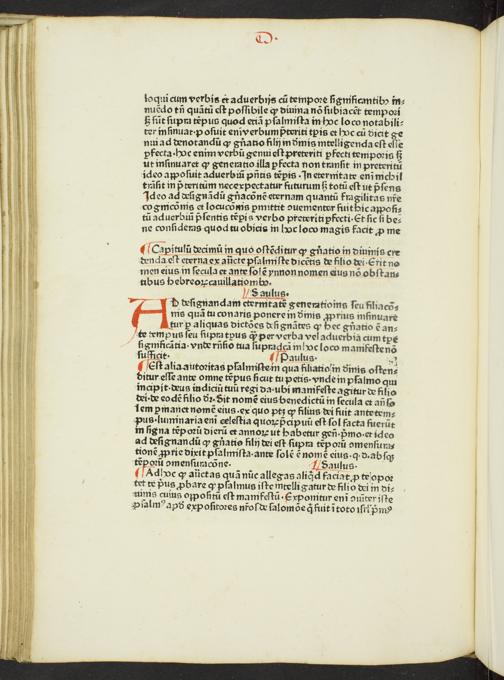 D.
loqui cum verbis et adverbijs cū tempore significantibꝰ in-
tuēdo tn̄ quātū est possibile ꝙ divina nō subiacēt tempori
sȝ sūt supra tēpus quod etiā psalmista in hoc loco notabili-
ter insinuat· posuit enī verbum p̄teriti tp̄is et hoc cū dicit ge
nui ad denotandū ꝙ gn̄atio filij in dīnis intelligenda est esse
ꝑfecta· hoc enim verbū genui est preteriti ꝑfecti temporis sȝ
ut insinuaret ꝙ generatio illa ꝑfecta non transit in preteritū
ideo apposuit adverbiū p̄ntis tēpis· In eternitate enī nichil
trāsit in p̄teritum nec expectatur futurum sȝ totū est ut p̄sens
Ideo ad designandū gn̄acōnē eternam quantū fragilitas nr̄e
cognicōnis et locucōnis ꝑmittit
tū adverbiū p̄sentis tēpis verbo preteriti ꝑfecti· Et sic si be-
ne consideras quod tu obicis in hoc loco magis facit ꝓ me
¶ Capitulū decimū in quo ostēditur ꝙ gn̄atio in divinis cre
denda est eterna ex auctē psalmiste dicētis de filio dei· Erit no
men eius in secula et ante solē ynnon nomen eius nō obstan-
tibus hebreoꝝ cavillationibꝰ·
¶ Saulus·
AD designandam eternitatē generatioins seu filiacō-
nis quā tu conaris ponere in dīnis ꝓprius insinuare
tur ꝑ aliquas dictōes designātes ꝙ hec gn̄atio ē an-
te tempus seu supra tpus ꝙ per verba vel adverbia cum tpe
significātia· vnde rn̄sio tua supradcā in hoc loco manifeste nō
sufficit· ¶ Paulus·
¶ Est alia autoritas psalmiste in qua filiatio in dīnis osten-
ditur esse ante omne tēpus sicut tu petis· vnde in psalmo qui
incipit· deus iudiciū tuū regi da· ubi manifeste agitur de filio
dei· de eodē filio dr̄· Sit nomē eius benedictū in secula et an̄ so
lem ꝑmanet nomē eius· ex quo ptȝ ꝙ filius dei fuit ante tem-
pus· luminaria enī celestia quoꝝ p̄cipuū est sol facta fuerūt
in signa tēporū dierū et annoꝝ ut habetur gen̄· pͥmo· et ideo
ad designandū ꝙ gn̄atio filij dei est supra tēporū omensura-
tionē ꝓprie dixit psalmista· ante solē ē nomē eius· q· d· absqꝫ
tēporū omensuracōne· ¶ Saulus·
¶ Ad hoc ꝙ auctas quā nūc allegas aliqd faciat ꝓ te opor
tet te pͥus ꝓbare ꝙ psalmus iste intelligatur de filio dei in di-
uinis cuius oppositū est manifestū· Exponitur enī iste
psalmꝰ apd expositores nr̄os de salomōe q̄ fuit ī toto isrl pͥmꝰ